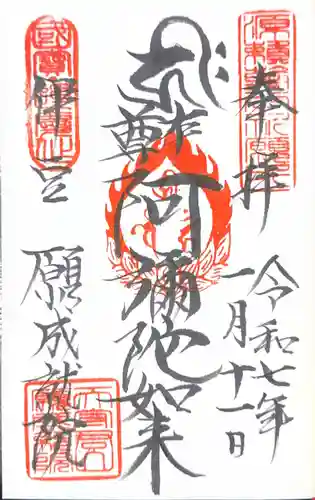 奉拝
令和七年
一月十一日
本尊
阿彌陀如来
伊豆
願成就院